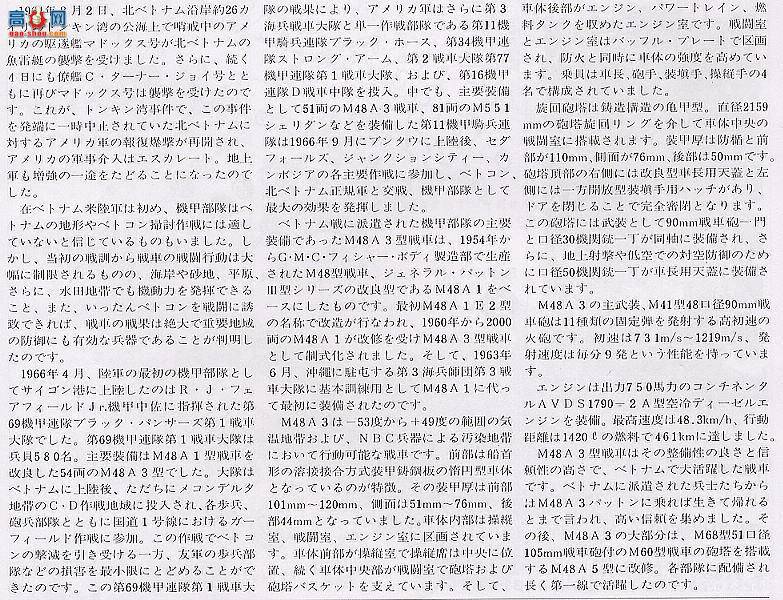 高手
GAOSHOU.NET
1964年8月2日、北ベトナム沿岸約26カ
イリ、トンキン湾の公海上で哨戒中のアメ
リカの駆逐艦マドックス号が北ベトナムの
魚雷艇の襲撃を受けました。さらに、続く
4日にも僚艦C・ターナー・ジョイ号とと
もに再びマドックス号は襲撃を受けたので
す。これが、トンキン湾事件で、この事件
を発端に一時中止されていた北ベトナムに
対するアメリカ軍の報復爆撃が再開され、
アメリカの軍事介入はエスカレート。地上
軍も増強の一途をたどることになったので
した。
在ベトナム米陸軍は初め、機甲部隊はベ
トナムの地形やベトコン掃討作戦には適し
ていないと信じているものもいました。し
かし、当初の戦訓から戦車の戦闘行動は大
幅に制限されるものの、海岸や砂地、平原、
さらに、水田地帯でも機動力を発揮できる
こと、また、いったんベトコンを戦闘に誘
致できれば、戦車の戦果は絶大で重要地域
の防御にも有効な兵器であることが判明し
たのです。
1966年4月、陸軍の最初の機甲部隊とし
てサイゴン港に上陸したのはR・J・フェ
アフィールドJr.機甲中佐に指揮された第
69機甲連隊ブラック・パンサーズ第1戦車
大隊でした。第69機甲連隊第1戦車大隊は
兵員580名。主要装備はM48A1型戦車を
改良した54両のM48A3型でした。大隊は
ベトナムに上陸後、ただちにメコンデルタ
地帯のC・D作戦地域に投入され、各歩兵、
砲兵部隊とともに国道1号線におけるガー
フィールド作戦に参加。この作戦でベトコ
ンの撃滅を引き受ける一方、友軍の歩兵部
隊などの損害を最小限にとどめることがで
きたのです。この第69機甲連隊第1戦車大
隊の戦果により、アメリカ軍はさらに第3
海兵戦車大隊と単一作戦部隊である第11機
甲騎兵連隊ブラック・ホース、第34機甲連
隊ストロング・アーム、第2戦車大隊第77
機甲連隊第1戦車大隊、および、第16機甲
連隊D戦車中隊を投入。中でも、主要装備
として51両のM48A3戦車、81両のM551
シェリダンなどを装備した第11機甲騎兵連
隊は1966年9月にブンタウに上陸後、セダ
フォールズ、ジャンクションシティー、カ
ンボジアの各主要作戦に参加し、ベトコン、
北ベトナム正規軍と交戦、機甲部隊として
最大の効果を発揮しました。
ベトナム戦に派遣された機甲部隊の主要
装備であったM48A3型戦車は、1954年か
らG・M・C・フィシャー・ボディ製造部で生産
されたM48型戦車、ジェネラル・パットン
III型シリーズの改良型であるM48A1をベ
ースにしたものです。最初M48A1E2型
の名称で改造が行なわれ、1960年から2000
両のM48A1が改修を受けM48A3型戦車
として制式化されました。そして、1963年
6月、沖縄に駐屯する第3海兵師団第3戦
車大隊に基本訓練用としてM48A1に代っ
て最初に装備されたのです。
M48A3は−53度から+49度の範囲の気
温地帯および、NBC兵器による汚染地帯
において行動可能な戦車です。前部は船首
形の溶接接合方式装甲鋳鋼板の楕円型車体
となっているのが特徴。その装甲厚は前部
101mm〜120mm、側面は51mm〜76mm、後
部44mmとなっていました。車体内部は操縦
室、戦闘室、エンジン室に区画されていま
す。車体前部が操縦室で操縦席は中央に位
置、続く車体中央部が戦闘室で砲塔および
砲塔バスケットを支えています。そして、
車体後部がエンジン、パワートレイン、燃
料タンクを収めたエンジン室です。戦闘室
とエンジン室はバッフル・プレートで区画
され、防火と同時に車体の強度を高めてい
ます。乗員は車長、砲手、装填手、操縦手の4
名で構成されていました。
旋回砲塔は鋳造構造の亀甲型。直径2159
mmの砲塔旋回リングを介して車体中央の
戦闘室に搭載されます。装甲厚は防楯と前
部が110mm、側面が76mm、後部は50mmです。
砲塔頂部の右側には改良型車長用天蓋と左
側には一方開放型装填手用ハッチがあり、
ドアを閉じることで完全密閉となります。
この砲塔には武装として90mm戦車砲一門
と口径30機関銃一丁が同軸に装備され、さ
らに、地上射撃や低空での対空防御のため
に口径50機関銃一丁が車長用天蓋に装備さ
れています。
M48A3の主武装、M41型48口径90mm戦
車砲は11種類の固定弾を発射する高初速の
火砲です。初速は731m/s〜1219m/s、発
射速度は毎分9発という性能を持っていま
す。
エンジンは出力750馬力のコンチネンタ
ルAVDS1790−2A型空冷ディーゼルエ
ンジンを装備。最高速度は48.3km/h、行動
距離は1420ℓの燃料で461kmに達しました。
M48A3型戦車はその整備性の良さと信
頼性の高さで、ベトナムで大活躍した戦車
です。ベトナムに派遣された兵士たちから
はM48A3パットンに乗れば生きて帰れる
とまで言われ、高い信頼を集めました。そ
の後、M48A3の大部分は、M68型51口径
105mm戦車砲付のM60型戦車の砲塔を搭載
するM48A5型に改修。各部隊に配備され
長く第一線で活躍したのです。